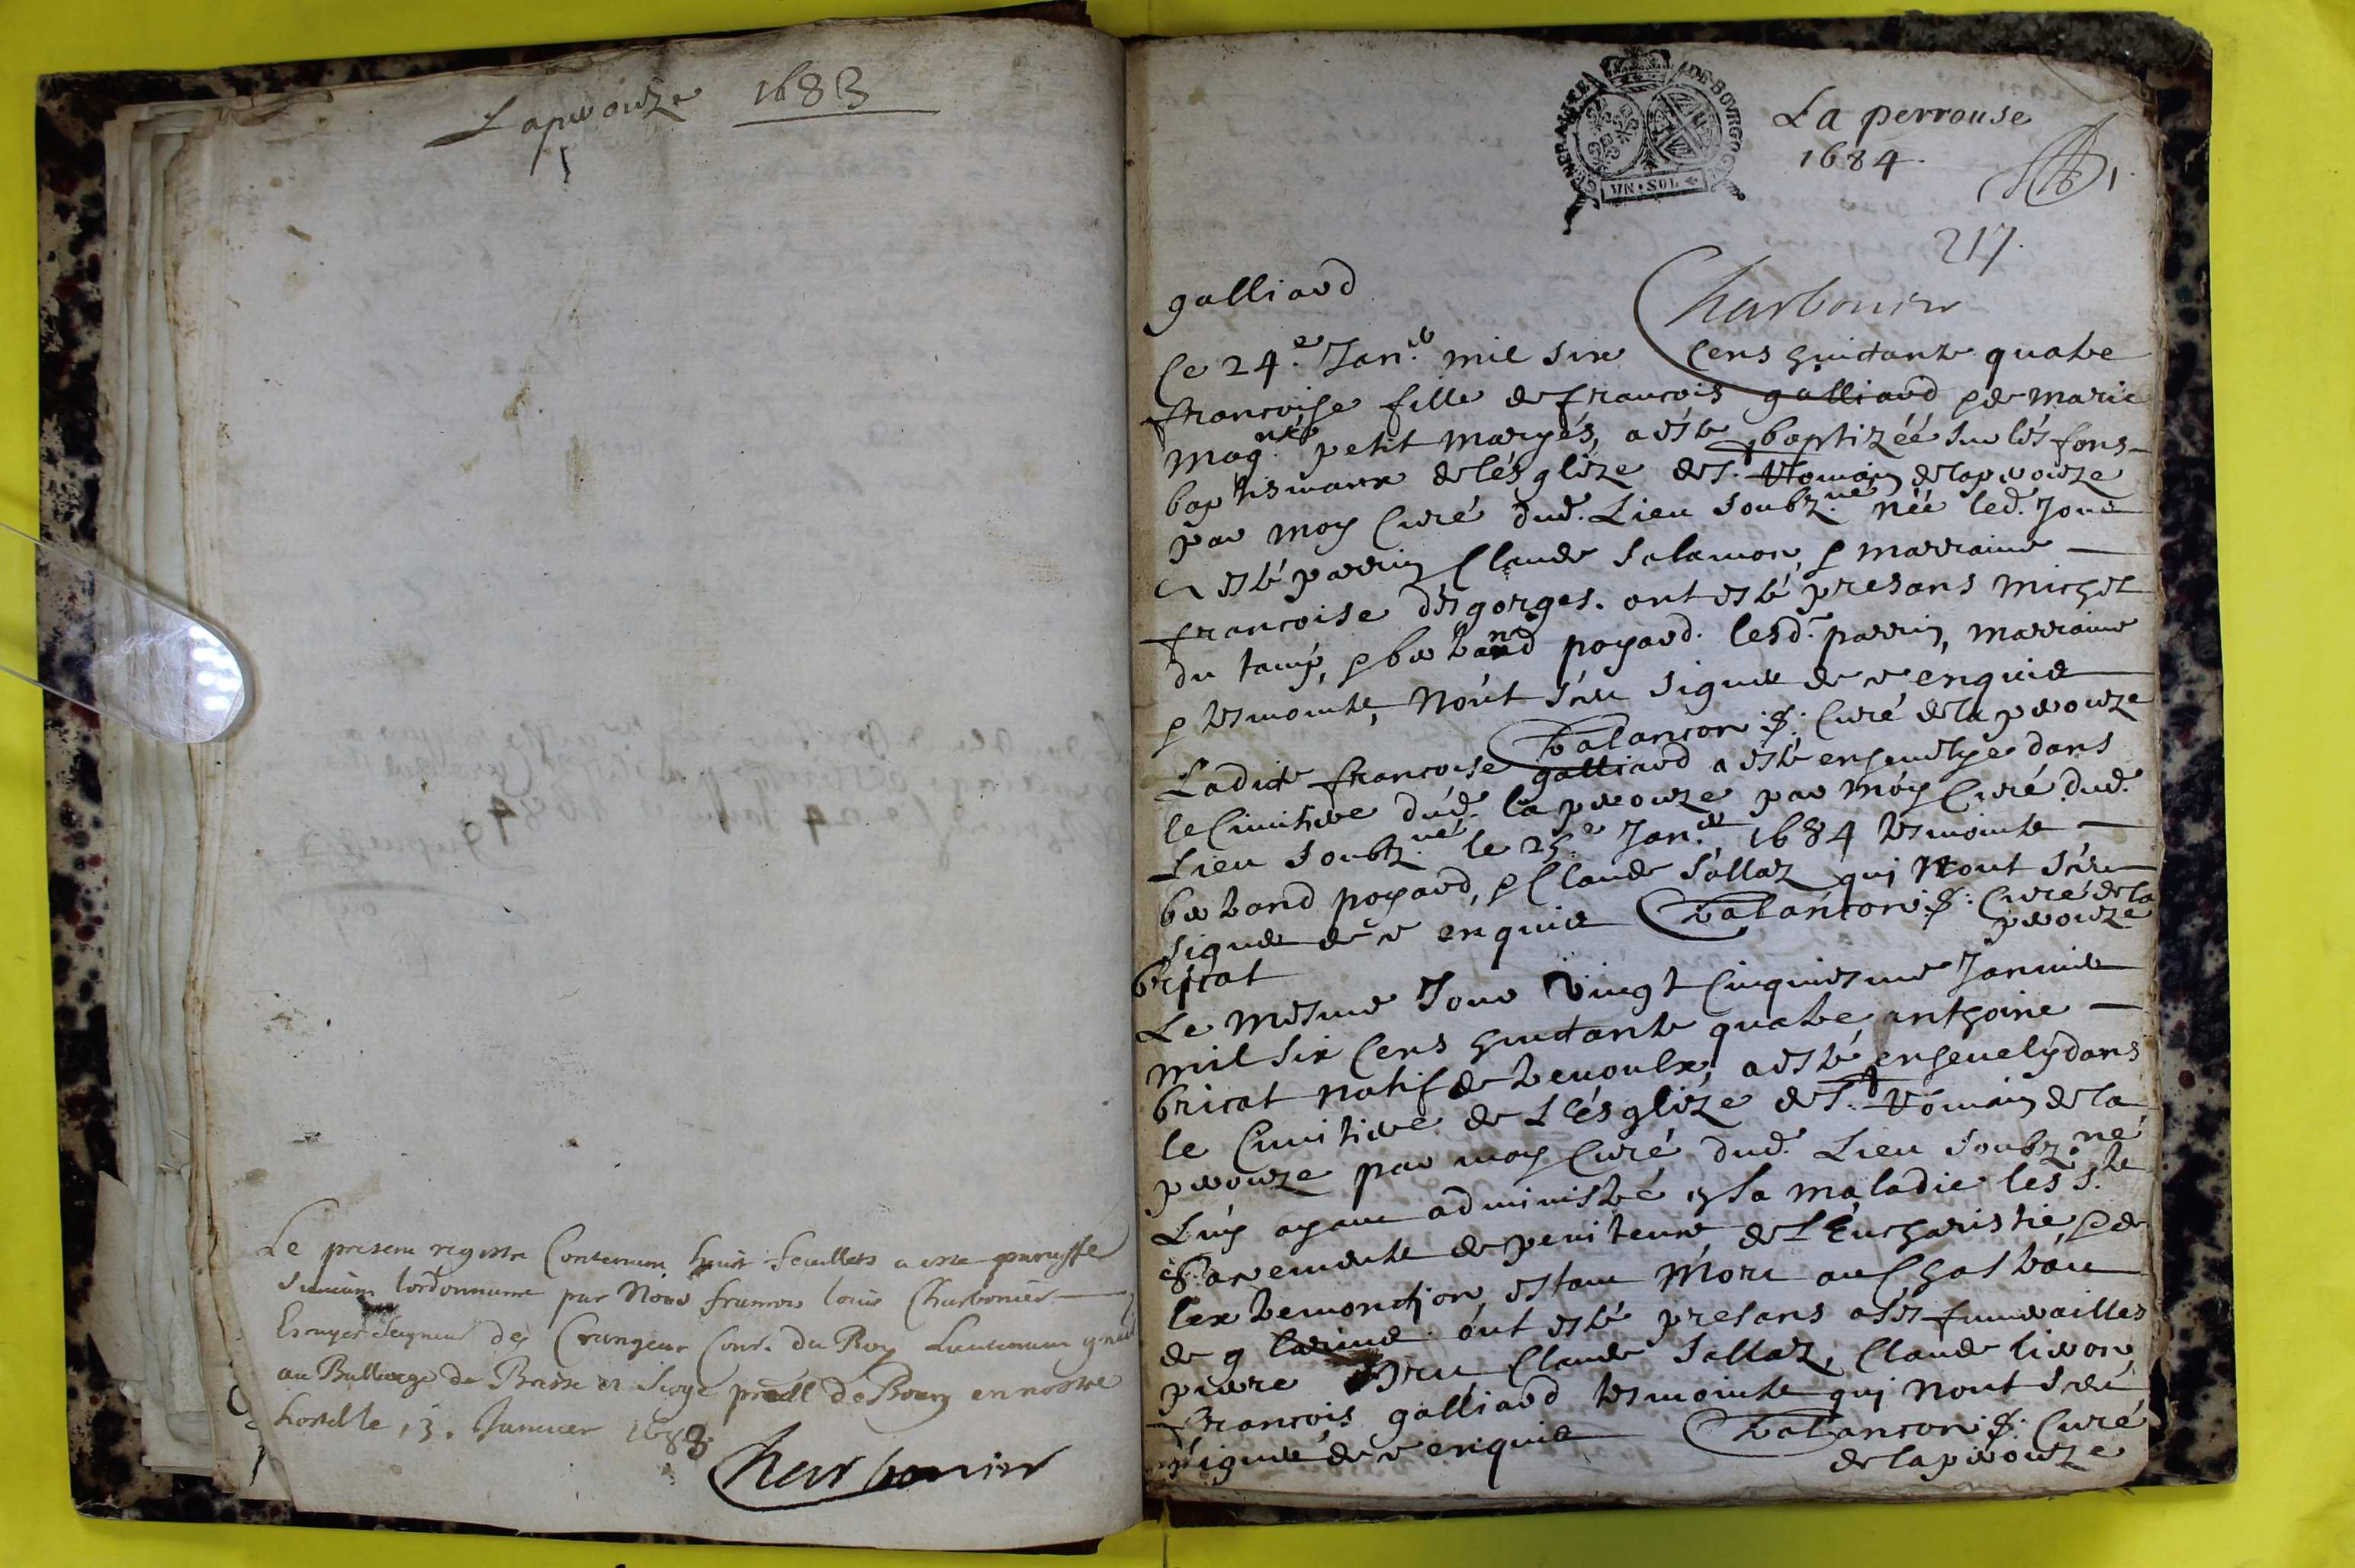 Laperouze 1683
Le present registre Contenant huit feuillets a esté paraffé
suivant lordonnance par Nous francois louis Charbonier
Escuyer Seigneur de Crangeac Cons. du Roy Lieutenant gnal
au Bailliage de Bresse et Siege presall de Bourg en nostre
hostel le 3. Janvier 1683
Charbonier
GENERALITE DE BOVRGOGNE
VN SOL
La perrouse
1684.
1.
217.
galliard
Charbonier
Ce 24.e Jan.er mil six Cens huictante quatre
francoise fille de francois galliard & de marie
petit maryés, a esté baptizéé sur les fons
baptismaux de lésglize de St. Romain de laperouze
par moy Curé dud. Lieu soubz.né néé led. Jour
a esté parrin Claude salamon, & marraine
francoise desgorges. ont esté presans michel
du tamp, & bertrand poyard. lesd. parrin, marraine
& tesmointz, nónt sceu signer de ce enquis
balancon p: Curé de la perouze
Ladite francoise galliard a esté ensevelye dans
le Cimitiere dud. laperouze par móy Curé dud.
Lieu soubz.né le 25.e Jan.er 1684 tesmointz
bertrand poyard, & Claude sallaz qui nont sceu
signer de ce enquis balancon p: Curé de la
perouze
bricat
Le mesme Jour Vingt Cinquiesme Janvier
mil six Cens huictante quatre, anthoine
bricat natif de, a esté ensevely dans
le Cimitiere de Lésglize de St. Romain de la
perouze par moy Curé dud. Lieu soubz.né
Luy ayant administré en sa maladie les S.te
Sacrements de penitence de LEucharistie, & de
lextremonction, estant mort au Chasteau
de. ónt esté presans a ses funerailles
pierre Claude sallaz, Claude
francois galliard tesmointz qui nont sceu
signer de ce enquis balancon p: Curé
de laperouze